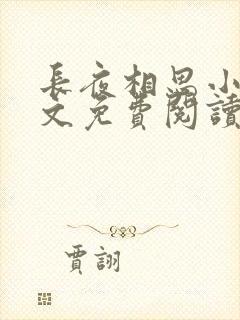 長夜相思小
文免費閱讀
賈詡